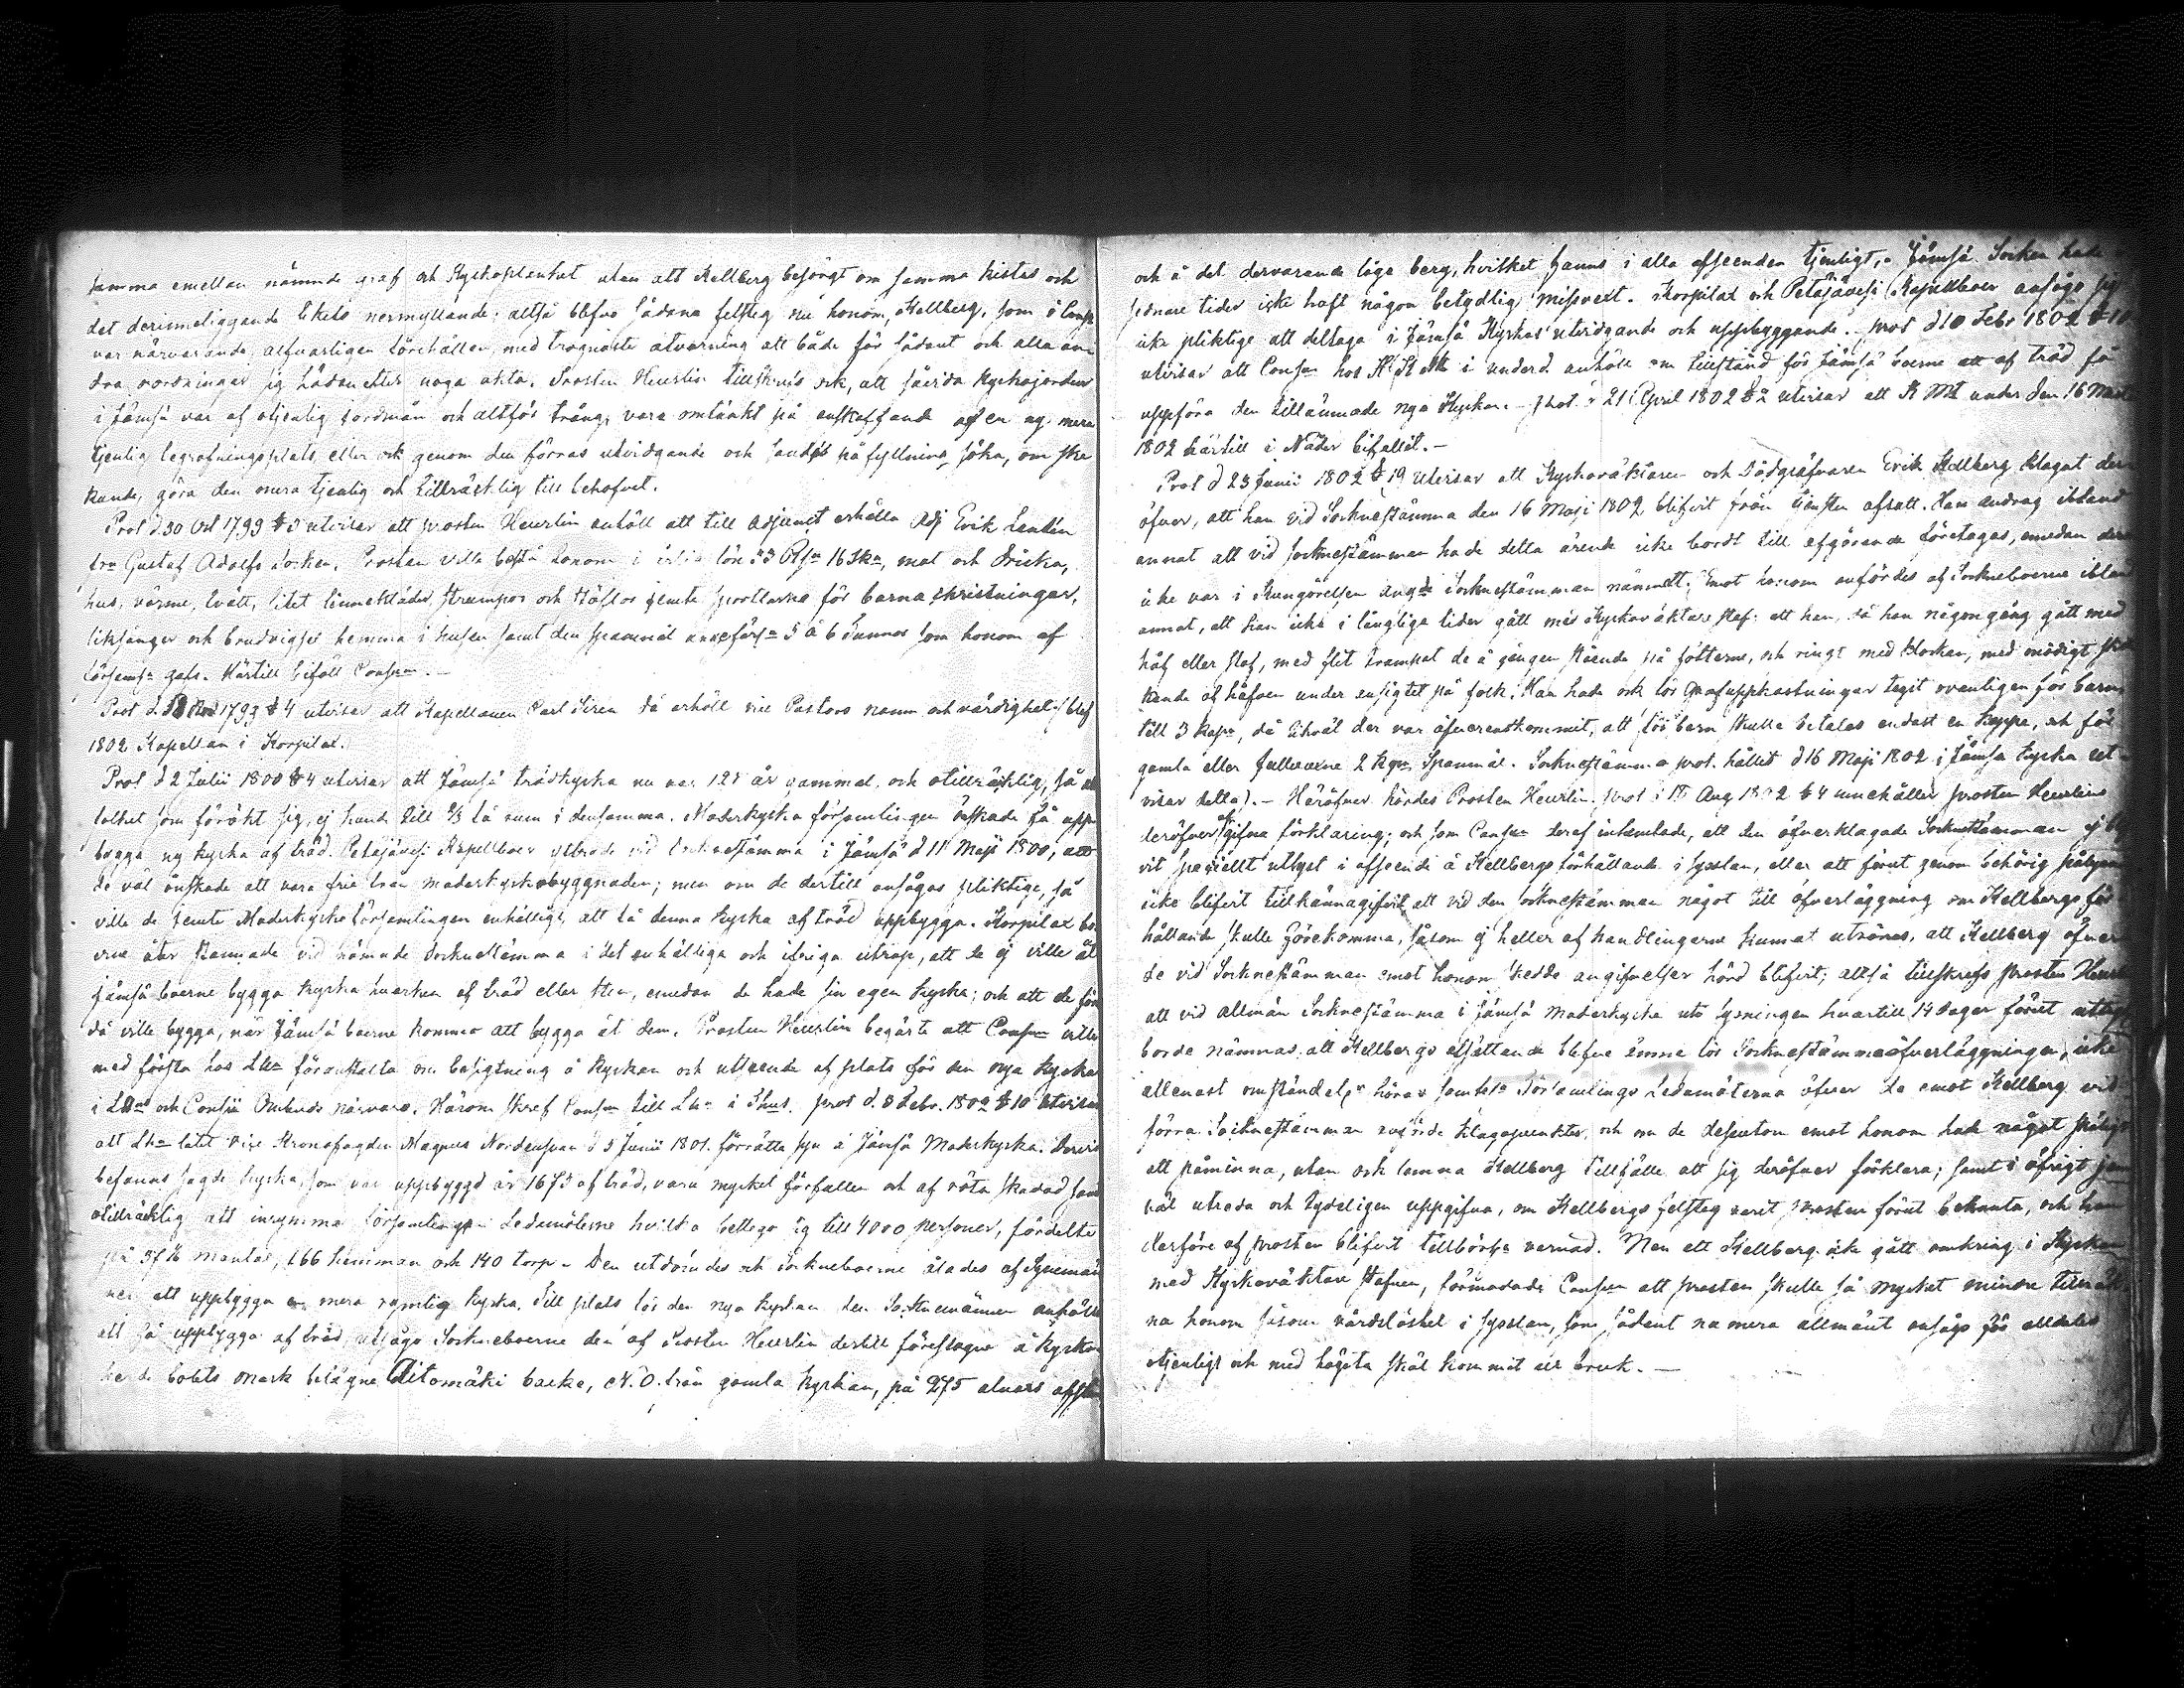 samma emellan nämnde graf och Kyrkoplanket utan att Kellberg besörgt om samma kistas och
det derinneliggande likets nermyllande; altså blefvo sådana felsteg nu honom, Kellberg, som i Cons
var närvarande, alfvarligen förehållen, med trägnaste åtvarning att både för sådant och alla an
dra vordningar sig hädanefter noga akta. Prosten Heurlin tillskrefs ock, att såvida kyrkojorden
i Jämsä var af otjenlig jordmån och altför trång, vara omtänkt på anskaffande af en ny mera
tjenlig begrafningsplats, eller ock genom den förras utvidgande och sands påfyllning söka, om ske
kunde, göra den mera tjenlig och tillräcklig till behofvet.
Prot d. 30 Oct 1793 § 5 utvisar att prosten Heurlin anhöll att till adjunct erhålla Adj Erik Lenkén
från Gustaf Adolfs Socken. Prosten ville bestå honom i årlig lön 33 R 16 Sk, mat och dricka,
hus, värme, tvätt, litet linnekläder, strumpor och stöflor jemte sportlarna för barna christningar,
liksånger och brudvigsel hemma i husen samt den spannmål 5 à 6 Tunnor som honom af
församl gafs. Härtill biföll Cons.—
Prot d. 1793 § 4 utvisar att Kapellanen Carl Siren då erhöll vice Pastors namn och värdighet. Blef
1802 Kapellan i Korpilax.
Prot d 2 Julii 1800 § 4 utvisar att Jämsä trädkyrka nu var 127 år gammal, och otillräcklig, så att
folket som förökt sig, ej hunde till 1/3 få rum i densamma. Moderkyrko församlingen önskade få upp
bygga ny kyrka af träd. Petäjävesi Kapellboer yttrade vid Socknestämma i Jämsä d 11 Maji 1800, att
de väl önskade att vara frie från moderkyrkobyggnaden; men om de dertill ansågos pliktige, så
ville de jemte Moderkyrkoförsamlingen enhälligt, att få denna kyrka af träd uppbygga. Korpilax bo
erne åter stannade vid nämnde Socknestämma i det enhälliga och ifriga utrop, att de ej ville åt
Jämsä boerne bygga kyrka hvarken af träd eller sten, emedan de hade sin egen kyrka; och att de för
då ville bygga, när Jämsä boerne kommer att bygga åt dem. Prosten Heurlin begärte att Cons ville
med första hos Lh föranstalta om besigtning å kyrkan och utseende af plats för den nya kyrkan
i Lh och Cons Ombuds närvaro. Härom skref Cons till Lh i Thus. Prot d. 3 Febr. 1802 § 10 utvisar
att Lh låtit vice Kronofogden Magnus Nordenswan d 5 Junii 1801. förrätta syn å Jämsä Moderkyrka. Dervid
befanns sagde kyrka, som var uppbyggd år 1673 af träd, vara mycket förfallen och af röta skadad samt
otillräcklig att inrymma församlings Ledamöterne hvilka bellego sig till 4000 personer, fördelte
på mantal, 166 hemman och 140 torp. Den utdömdes och Sockneboerne ålades af Synemän
nen att uppbygga en mera rymlig kyrka. Till plats för den nya kyrkan den Socknemännen anhöllo
att få uppbygga af träd, utsågo Sockneboerne den af Prosten Heurlin dertill föreslagne å kyrko
herde bolets mark belägne Aitomäki backe, N.O. från gamla kyrkan, på 275 alnars afstånd
och å det dervarande låga berg, hvilket fanns i alla afseenden tjenligt. Jämsä Socken hade
sednare tider icke haft någon betydlig missvext. Korpilax och Petäjävesi Kapellboer ansågo sig
icke pliktige att deltaga i Jämsä Kyrkas utvidgande och uppbyggande. Prot d 10 Febr 1802 § 10
utvisar att Cons hos K. M. i underd anhöll om tillstånd för Jämsä boerne att af träd få
uppföra den tillämnade nya kyrkan. – Prot d 21 April 1802 § 2 utvisar att K Mt under den 16 Mart
1802 härtill i Nåder bifallit.—
Prot d 23 Junii 1802 § 19 utvisar att Kyrkoväktaren och Dödgräfvaren Erik Kellberg klagat der
öfver, att han vid Socknestämma den 16 Maji 1802 blifvit från tjensten afsatt. Han andrag ibland
annat att vid socknestämman hade detta ärende icke bordt till afgörande företagas, emedan der
icke var i kungörelsen ang Socknestämman nämndt. Emot honom anfördes af Sockneboerne ibland
annat, att han icke i längliga tider gått med Kyrkoväktare staf: att han, då han någongång gått med
håf eller staf, med flit trampat de å gången stående på fötterne, och ringt med klockan, med onödigt
kande af håfven under ansigtet på folk. Han hade ock för grafuppkastningar tagit ovanligen för barn
till 3 kapp, då likväl der var öfverenskommit, att för barn skulle betalas endast en kappe, och för
gamla eller fullvuxne 2 kappar Spannmål. Socknestämma prot. hållet d 16 Maji 1802 i Jämsä kyrka ut
visar detta). – Häröfver hördes Prosten Heurlin. Prot d 18 Aug 1802 § 4 innehåller prosten Heurlins
deröfver afgifna förklaring; och som Cons deraf inhemtade, att den öfverklagade Socknestämman ej bli
vit speciellt utlyst i afseende å Kellbergs förhållande i sysslan, eller att förut genom behörig pålysn
icke blifvit tillkännagifvit att vid den socknestämman något till öfverläggning om Kellbergs för
hållande skulle förekomma, såsom ej heller af handlingarne kunnat utrönas, att Kellberg öfver
de vid Socknestämman emot honom skedde angifvelser hörd blifvit; altså tillskrefs prosten Heurl
att vid allmän Socknestämma i Jämsä moderkyrka uti lysningen hvartill 14 dagar förut
borde nämnas, att Kellbergs afsättande blefve ämne för Socknestämmoöfverläggningen, icke
allenast omständel. höra samtl. Församlings Ledamöterna öfver de emot Kellberg vid
förra Socknestämman anförde klagopunkter, och om de dessutom emot honom hade något skäligt
att påminna, utan ock lemna Kellberg tillfälle att sig deröfver förklara; samt i öfrigt
väl utreda och tydeligen uppgifva, om Kellbergs felsteg varit prosten förut bekanta, och han
derföre af prosten blifvit tillbörl. varnad. Men att Kellberg icke gått omkring i Kyrkan
med Kyrkoväktare stafven, förmodade Cons att prosten skulle så mycket mindre tillräk
na honom såsom vårdslöshet i sysslan, som sådant numera allmänt ansågs för alldeles
otjenligt och med högsta skäl kommit ur bruk.—